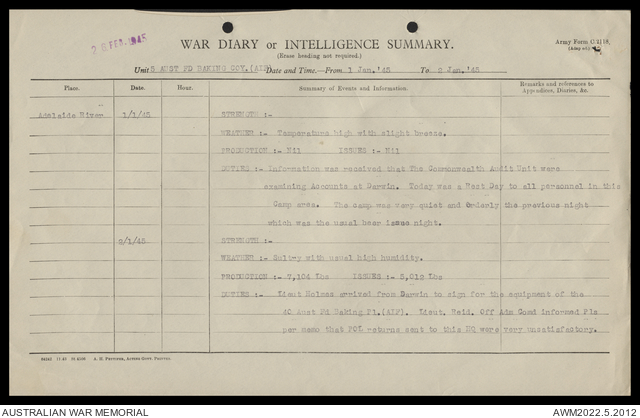 2 8 FEB 1945
WAR DIARY or INTELLIGENCE SUMMARY.
(Erase heading not required.)
Army Form C 2118.
Unit 5 AUST FD BAKING COY.(AIF) Date and Time.—From 1 Jan.'45 To 2 Jan.'45
Place. Date. Hour. Summary of Events and Information. Remarks and references to Appendices, Diaries, &c.
Adelaide River 1/1/45 STRENGTH :-
WEATHER :- Temperature high with slight breeze.
PRODUCTION :- Nil ISSUES :- Nil
DUTIES :- Information was received that The Commonwealth Audit Unit were
examining Accounts at Darwin. Today was a Rest Day to all personnel in this
Camp area. The camp was very quiet and Orderly the previous night
which was the usual beer issue night.
2/1/45 STRENGTH :-
WEATHER :- Sultry with usual high humidity.
PRODUCTION :- 7,104 Lbs ISSUES :- 5,012 Lbs
DUTIES :- Lieut Holmes arrived from Darwin to sign for the equipment of the
40 Aust Fd Baking Pl.(AIF). Lieut. Reid. Off Adm Comd informed Pls
per memo that POL returns sent to this HQ were very unsatisfactory.
AUSTRALIAN WAR MEMORIAL
AWM2022.5.2012